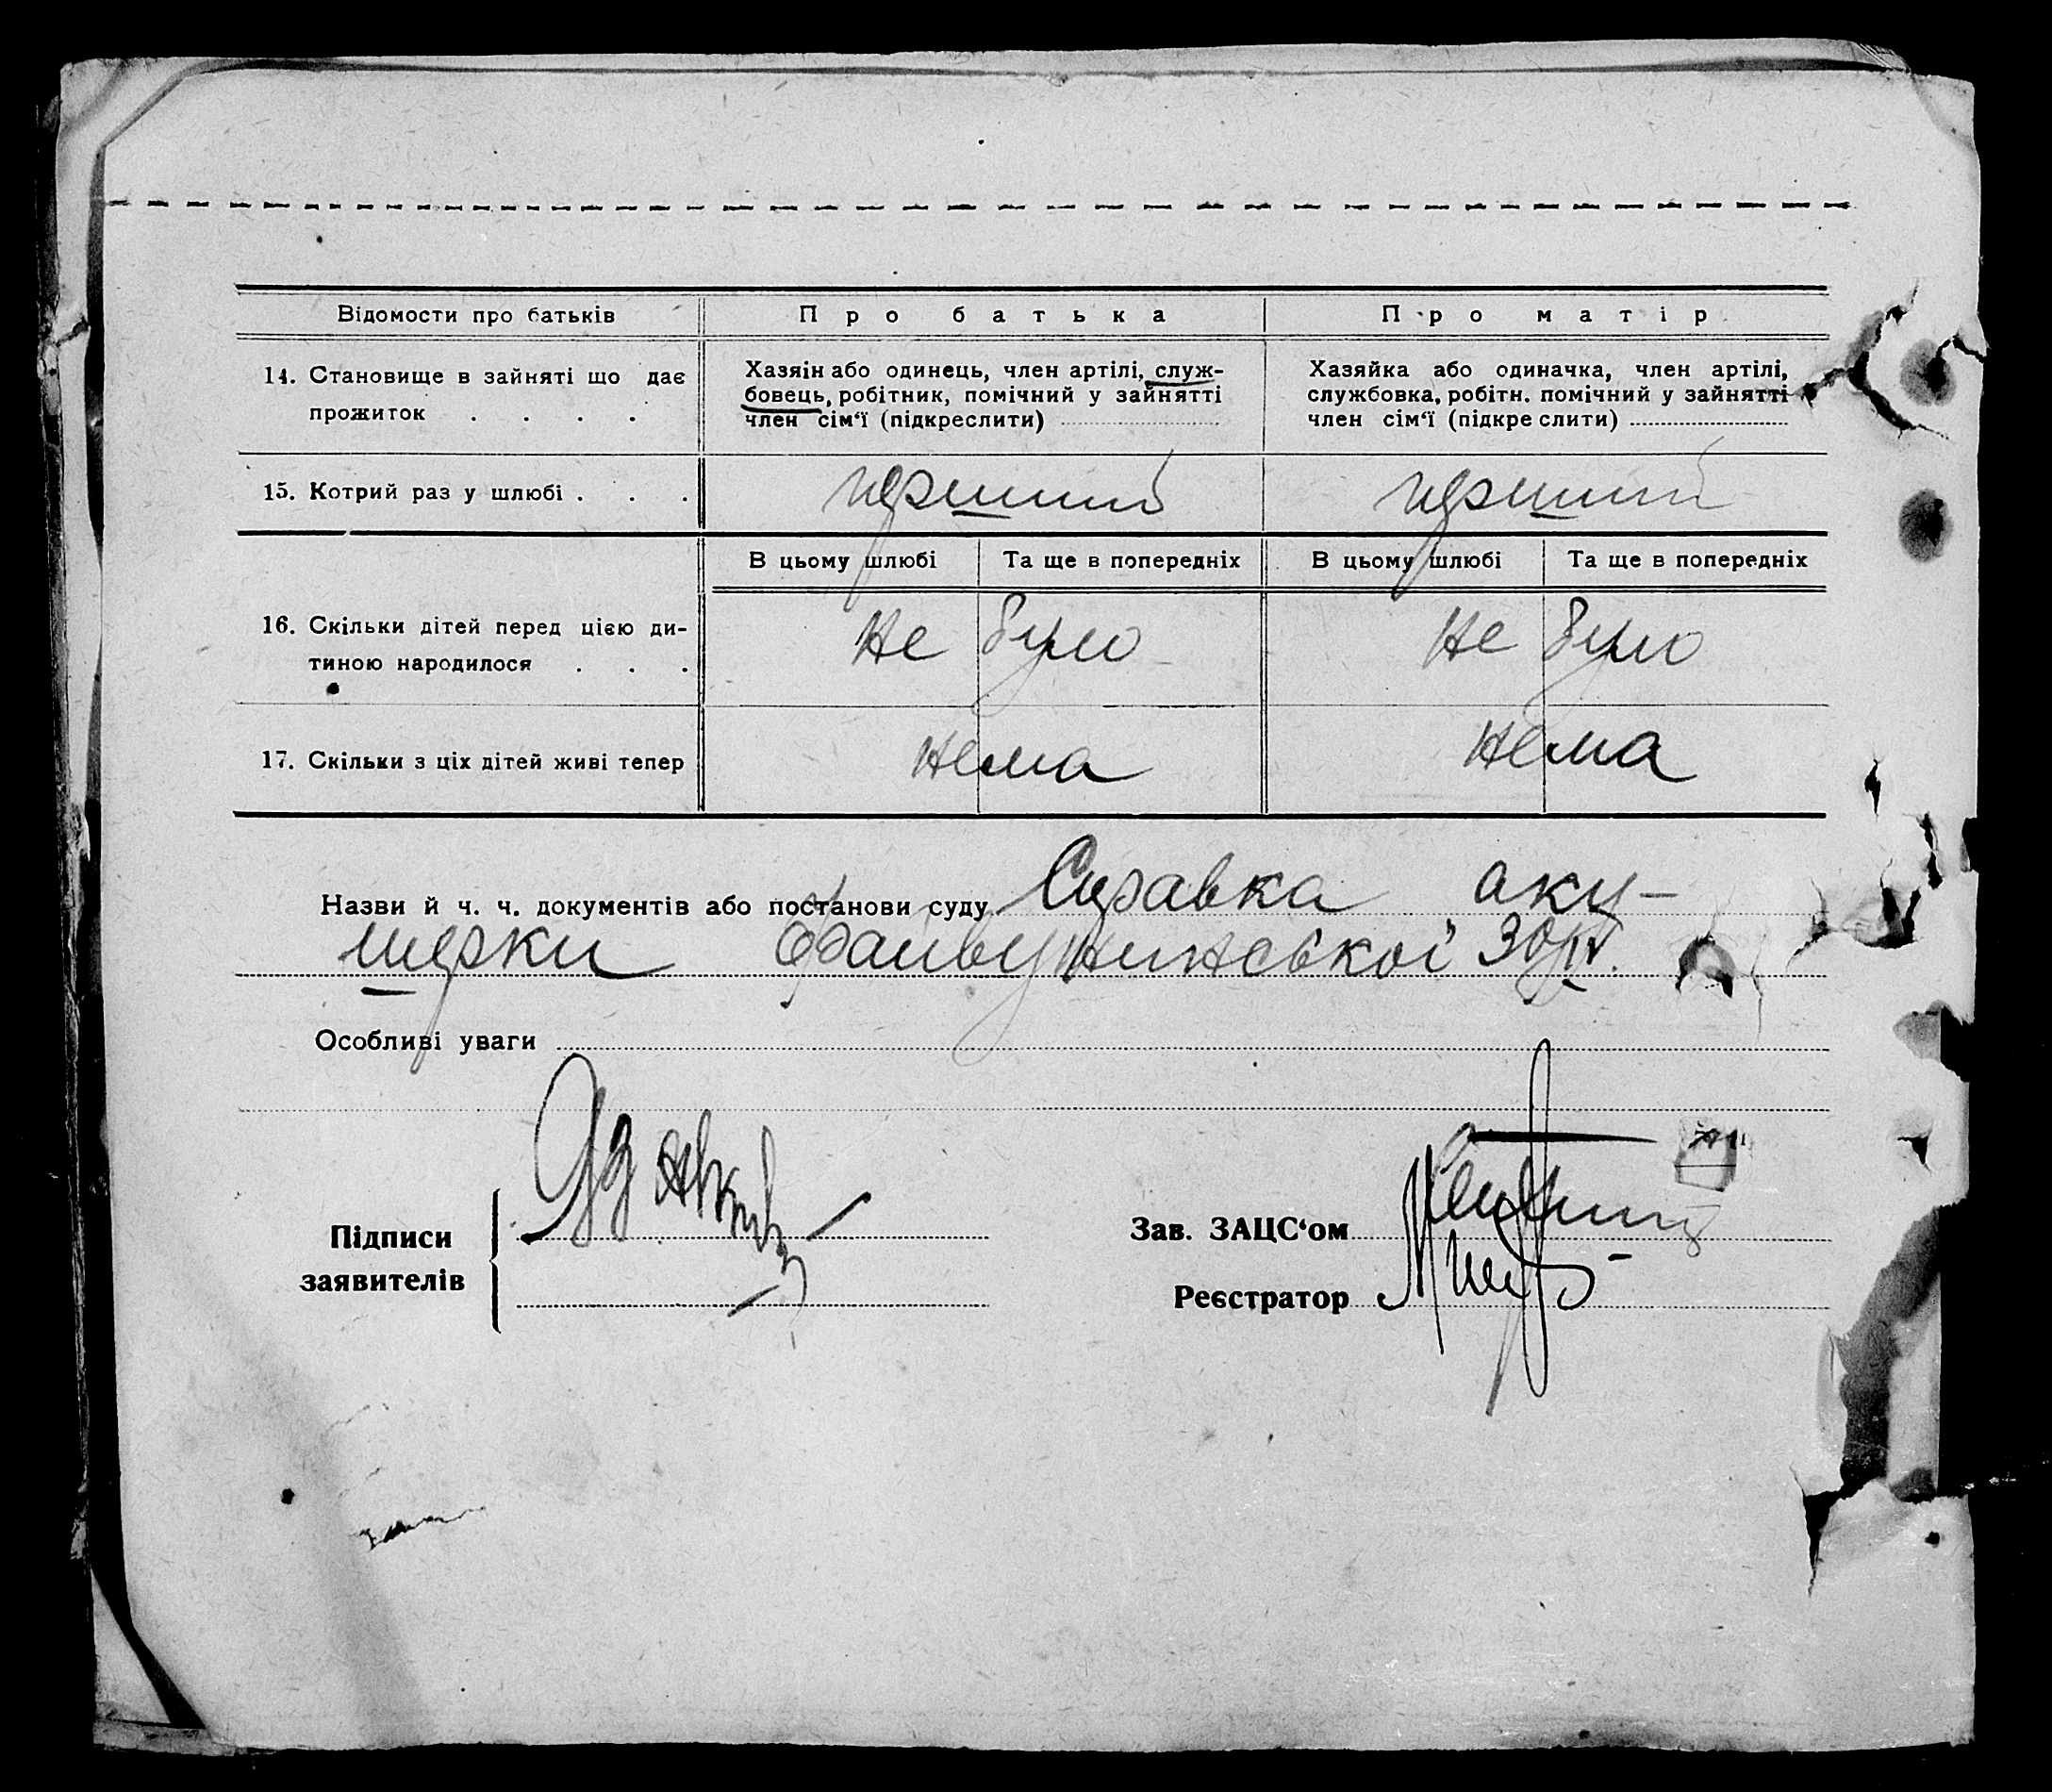 Відомости про батьків Про батька Про матір
14. Становище в зайняті що дає прожиток . . . .
Хазяін або одинець, член артілі, служ-
бовець, робітник, помічний у зайнятті
член сім‘ї (підкреслити)
Хазяйка або одиначка, член артілі,
службовка, робітн. помічний у зайнятті
член сім‘ї (підкреслити)
15. Котрий раз у шлюбі . . . перший перший
В цьому шлюбі Та ще в попередніх В цьому шлюбі Та ще в попередніх
16. Скільки дітей перед цією ди-
тиною народилося . . . не було не було
17. Скільки з ціх дітей живі тепер нема нема
Назви й ч. ч. документів або постанови суду Справка аку-
шерки 30/IV.
Особливі уваги
Підписи
заявителів
Зав. ЗАЦС‘ом
Реєстратор